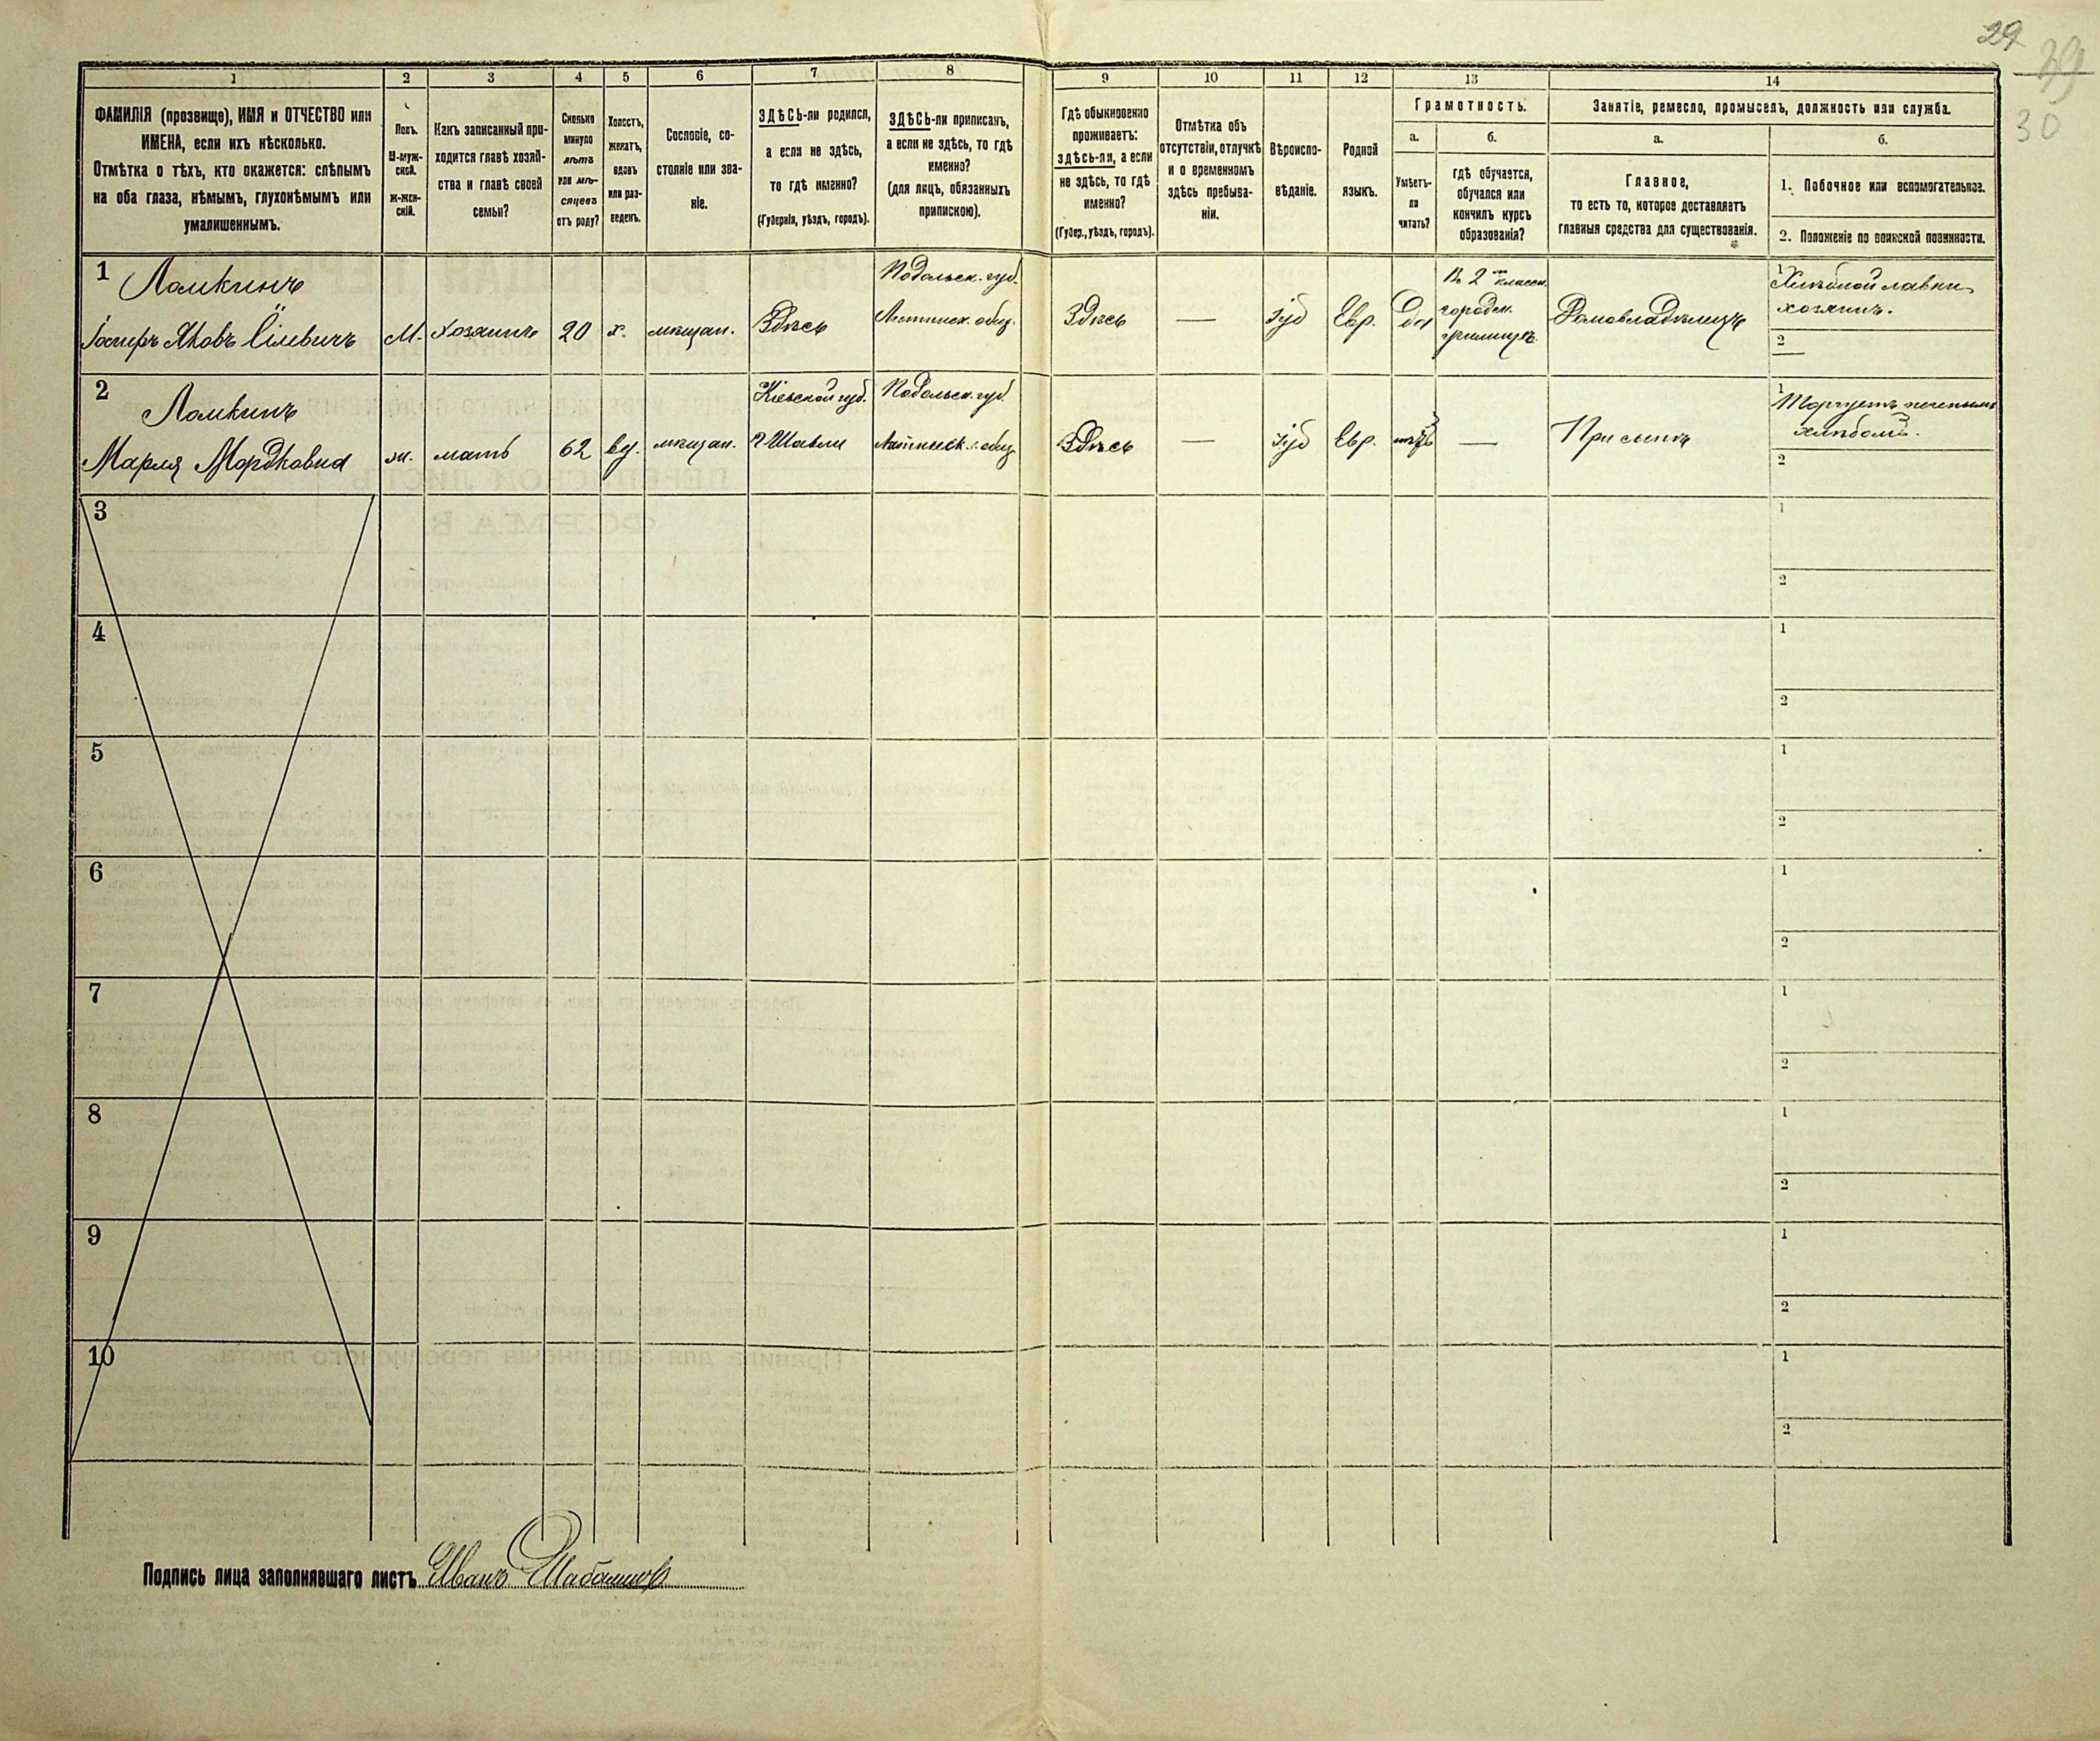 29
39
30
1
2
3
4
5
6
7
8
9
10
11
12
13
14
ФАМИЛІЯ (прозвище), ИМЯ и ОТЧЕСТВО или
ИМЕНА, если ихъ нѣсколько.
Отмѣтка о тѣхъ, кто окажется: слѣпымъ
на оба глаза, нѣмымъ, глухонѣмымъ или
умалишеннымъ.
Полъ.
М-муж-
ской.
Ж-жен-
скій.
Какъ записанный при-
ходится главѣ хозяй-
ства и главѣ своей
семьи?
Сколько
минуло
лѣтъ
или мѣ-
сяцевъ
отъ роду?
Холостъ,
женатъ,
вдовъ
или раз-
веденъ.
Сословіе, со-
стояніе или зва-
ніе.
ЗДѢСЬ-ли родился,
а если не здѣсь,
то гдѣ именно?
(Губернія, уѣздъ, городъ).
ЗДѢСЬ-ли приписанъ,
а если не здѣсь, то гдѣ
именно?
(для лицъ, обязанныхъ
припискою).
Гдѣ обыкновенно
проживаетъ:
здѣсь-ли, а если
не здѣсь, то гдѣ
именно?
(Губер., уѣздъ, городъ).
Отмѣтка объ
отсутствіи, отлучкѣ
и о временномъ
здѣсь пребыва-
ніи.
Вѣроиспо-
вѣданіе.
Родной
языкъ.
Грамотность.
а.
Умѣетъ-
ли
читать?
б.
гдѣ обучается,
обучался или
кончилъ курсъ
образованія?
Занятіе, ремесло, промыселъ, должность или служба.
а.
Главное,
то есть то, которое доставляетъ
главныя средства для существованія.
б.
1. Побочное или вспомогательное.
2. Положеніе по воинской повинности.
1
Ломкинъ
Іосифъ Яковъ
М.
Хозяинъ
20
х.
мѣщан.
Здѣсь
Подольск. губ.
общ.
Здѣсь
—
Іуд
Евр.
Да
Въ 2 классн.
городск.
училищѣ.
Домовладѣлецъ
1
Хлѣбной лавки
хозяинъ.
2
2
Ломкинъ
Марля Мордковна
ж.
мать
62
вд.
мѣщан.
Кіевской губ.
Подольск. губ.
общ.
Здѣсь
—
Іуд
Евр.
нѣтъ
—
При сынѣ
1
Торгуетъ печенымъ
хлѣбомъ.
2
3
1
2
4
1
2
5
1
2
6
1
2
7
1
2
8
1
2
9
1
2
10
1
2
Подпись лица заполнявшаго листъ Иванъ